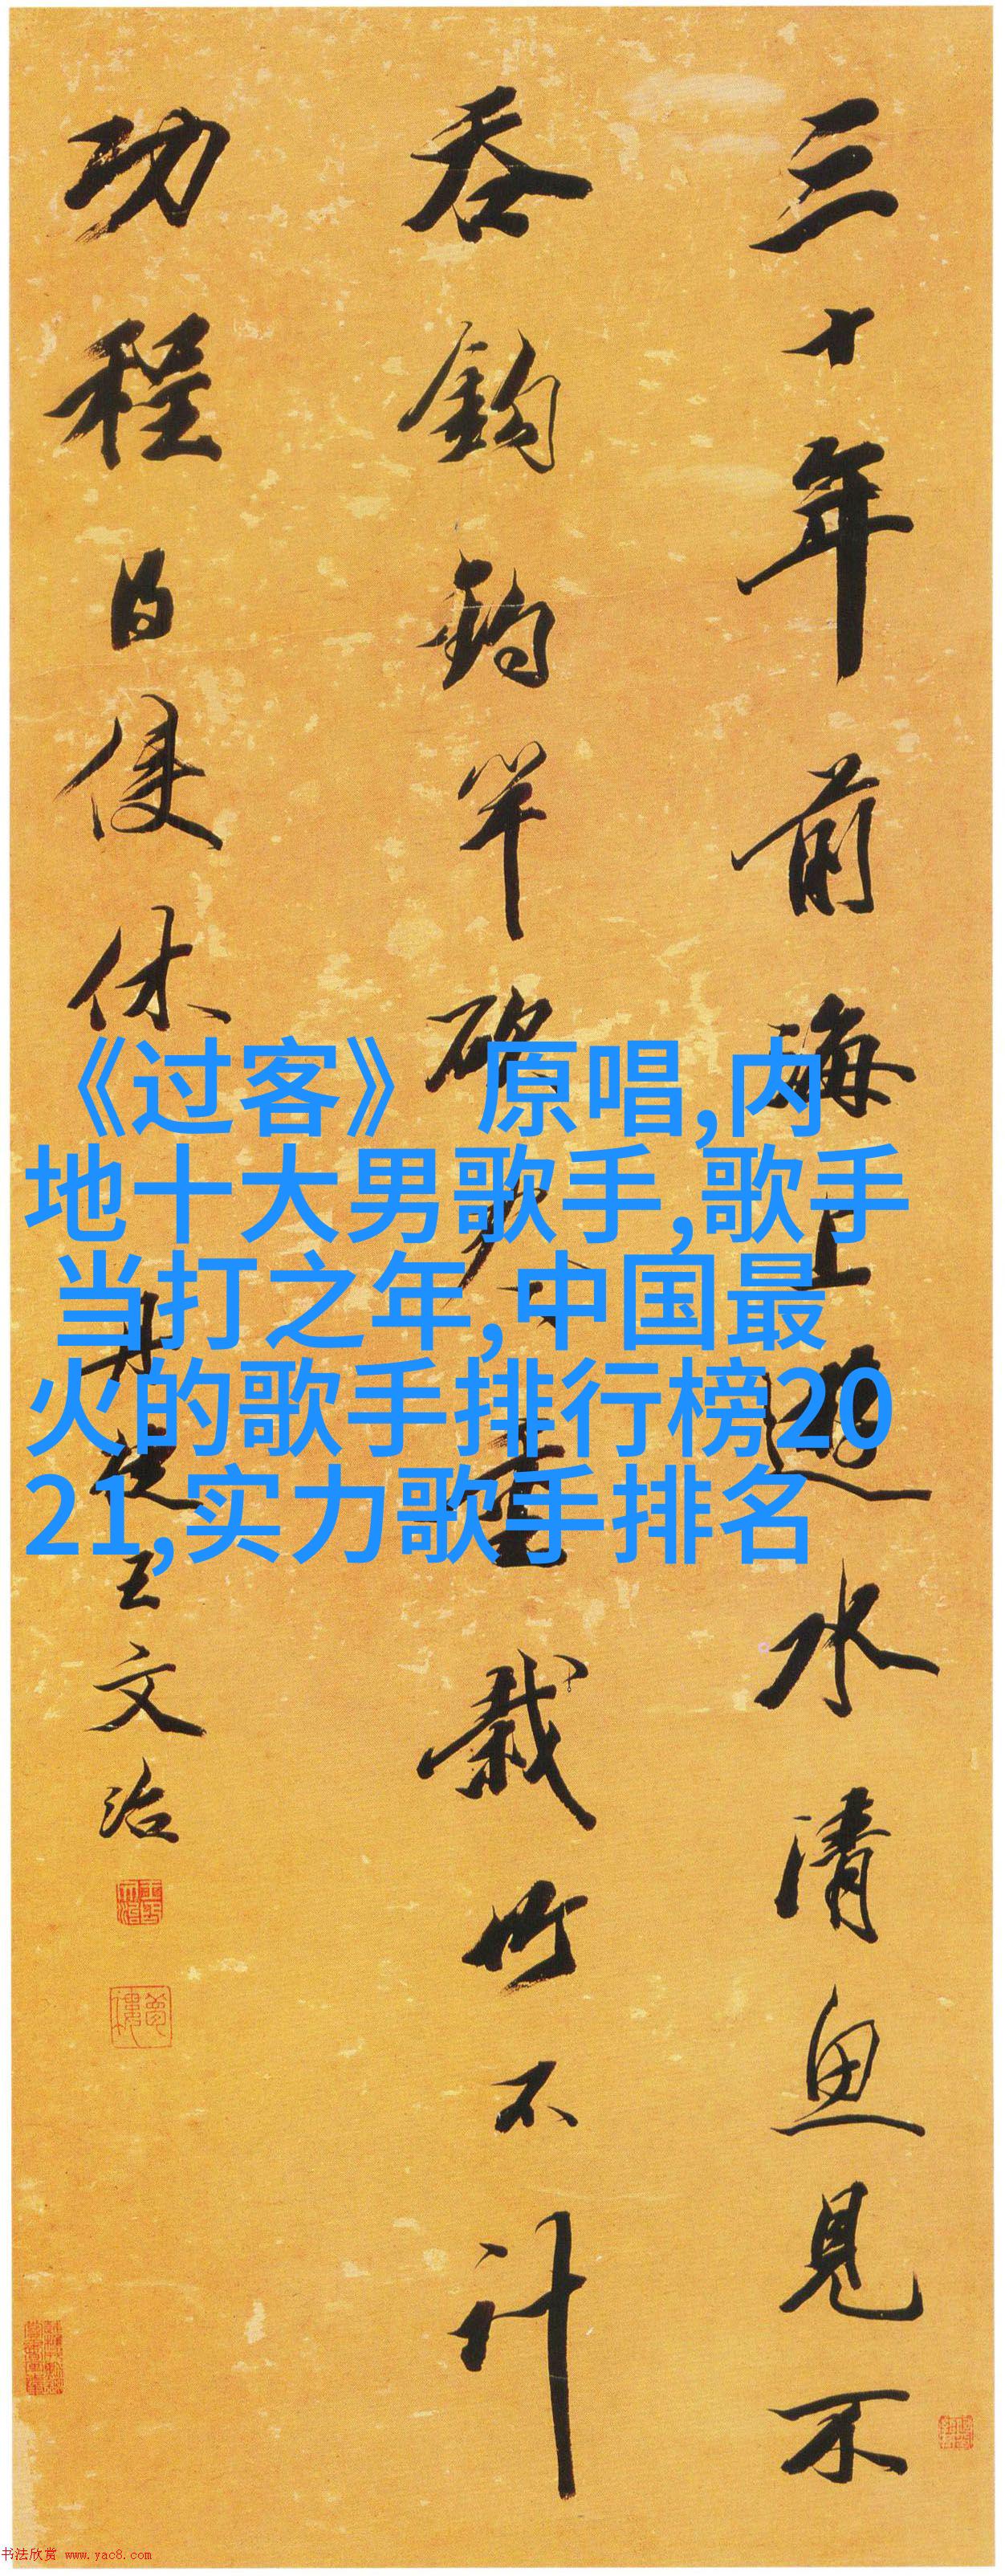 三十年前海上遊水清魚見不
吞鈎釣竿斫盡重栽竹不計
功程得便休
丹徒王文治
《过客》 原唱,内
地十大男歌手,歌手
当打之年,中国最
火的歌手排行榜20
21,实力歌手排名
书法欣赏 www.yac8.com